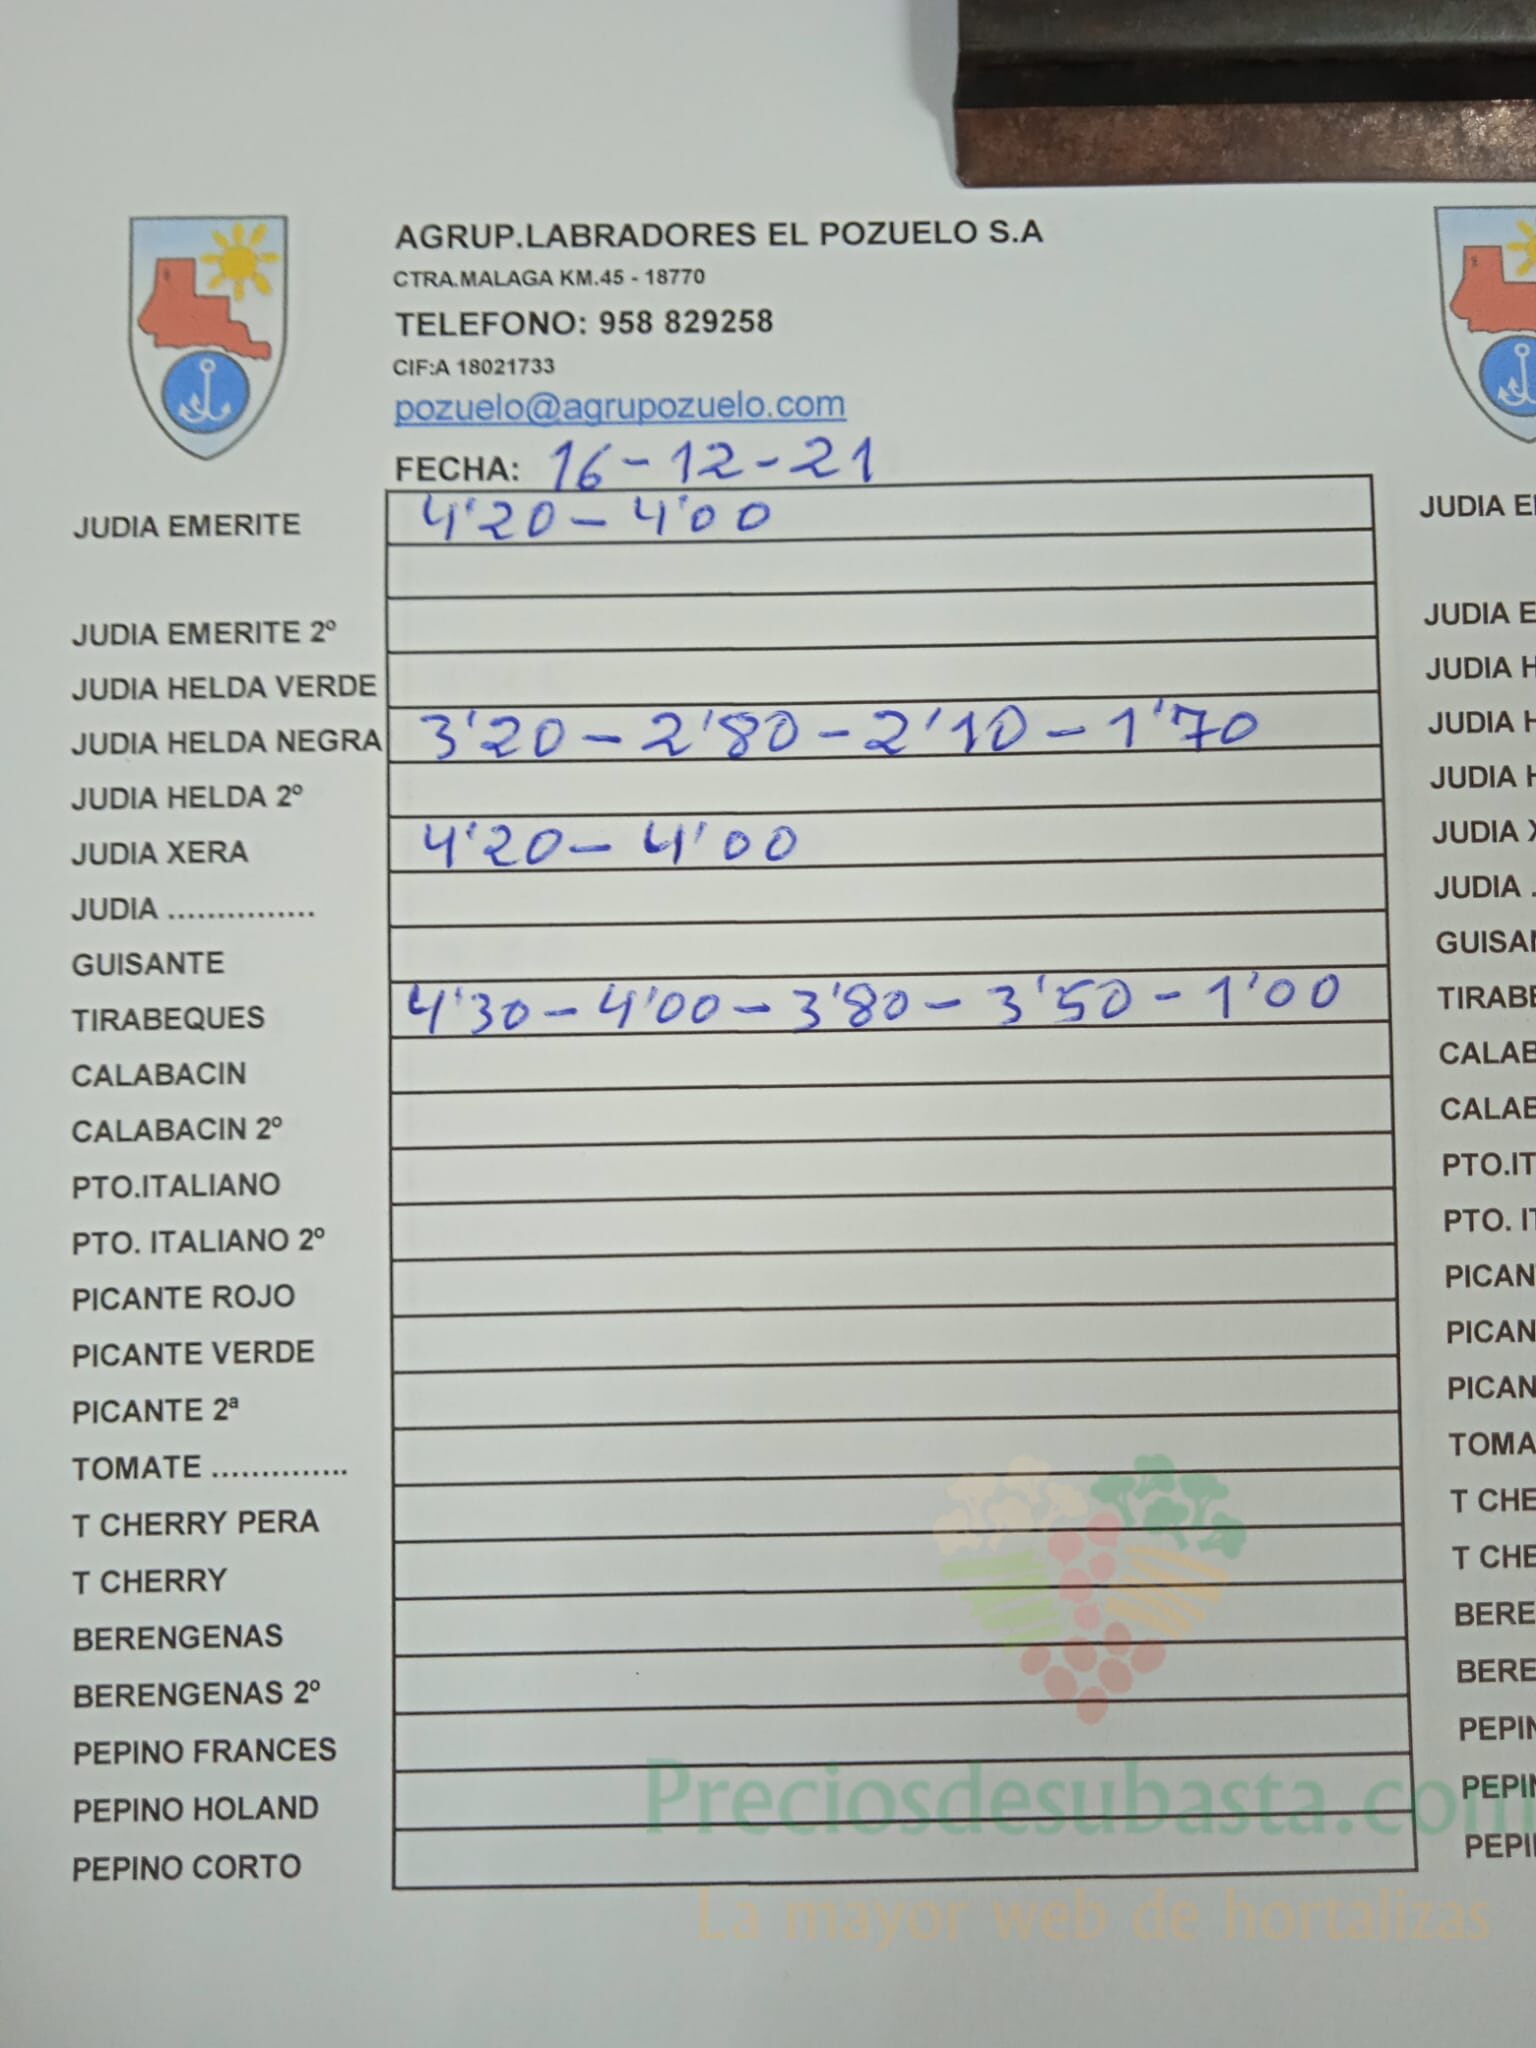 AGRUP.LABRADORES EL POZUELO S.A
CTRA.MALAGA KM.45 - 18770
TELEFONO: 958 829258
CIF:A 18021733
pozuelo@agrupozuelo.com
FECHA: 16-12-21
JUDIA EMERITE 4'20 - 4'00
JUDIA EMERITE 2º
JUDIA HELDA VERDE
JUDIA HELDA NEGRA 3'20 - 2'80 - 2'10 - 1'70
JUDIA HELDA 2º
JUDIA XERA 4'20 - 4'00
JUDIA ...............
GUISANTE
TIRABEQUES 4'30 - 4'00 - 3'80 - 3'50 - 1'00
CALABACIN
CALABACIN 2º
PTO.ITALIANO
PTO. ITALIANO 2º
PICANTE ROJO
PICANTE VERDE
PICANTE 2ª
TOMATE ..............
T CHERRY PERA
T CHERRY
BERENGENAS
BERENGENAS 2º
PEPINO FRANCES
PEPINO HOLAND
PEPINO CORTO
JUDIA E
JUDIA E
JUDIA H
JUDIA H
JUDIA H
JUDIA X
JUDIA .
GUISAN
TIRABE
CALAB
CALAB
PTO.IT
PTO. IT
PICAN
PICAN
PICAN
TOMA
T CHE
T CHE
BERE
BERE
PEPIN
PEPIN
PEPI
Preciosdesubasta.com
La mayor web de hortalizas